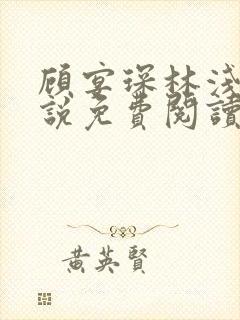 顧宴琛林淺
說免費閱讀
黃英賢